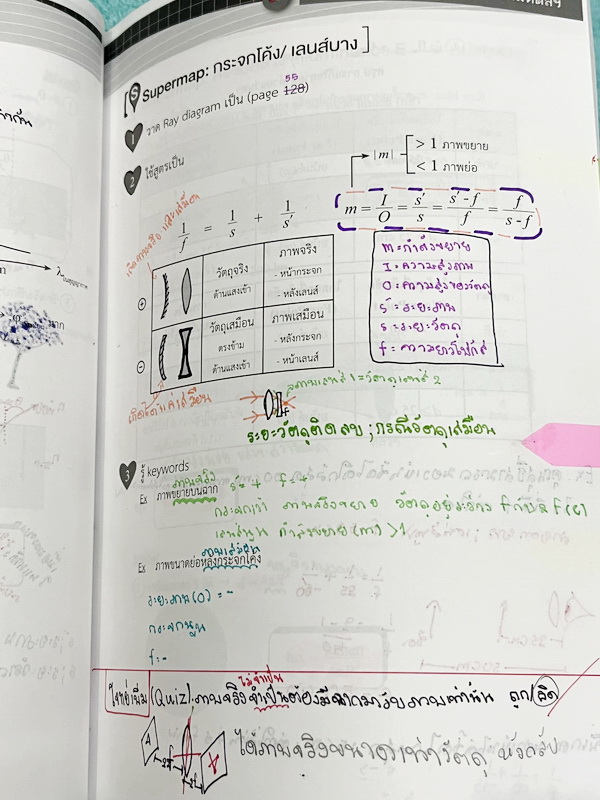 Supermap: กระจกโค้ง/ เลนส์บาง
55
1 วาด Ray diagram เป็น (page 128)
2 ใช้สูตรเป็น
|m| > 1 ภาพขยาย
< 1 ภาพย่อ
1/f = 1/s + 1/s'
m = I/O = s'/s = s'-f/f = f/s-f
m = กำลังขยาย
I = ความสูงภาพ
O = ความสูงของวัตถุ
s' = ระยะภาพ
s = ระยะวัตถุ
f = ความยาวโฟกัส
+ วัตถุจริง ภาพจริง
ด้านแสงเข้า - หน้ากระจก
- หลังเลนส์
- วัตถุเสมือน ภาพเสมือน
ตรงข้าม - หลังกระจก
ด้านแสงเข้า - หน้าเลนส์
ภาพเลนส์ 1 = วัตถุเลนส์ 2
ระยะวัตถุติดลบ ; กรณีวัตถุเสมือน
3 รู้ keywords
ภาพจริง
Ex ภาพขยายบนฉาก s' = + f = +
กระจกเว้า ภาพจริงขยาย วัตถุอยู่ระหว่าง f
เลนส์นูน กำลังขยาย (m) > 1
ภาพเสมือน
Ex ภาพขนาดย่อหลังกระจกโค้ง
ระยะภาพ = -
กระจกนูน
f = -
ไม่จำเป็น
โจทย์เพิ่ม (Quiz) ภาพจริงจำเป็นต้องมีฉากมารับภาพเท่านั้น ถูก/ผิด
2f 2f
ได้ภาพจริงขนาดเท่าวัตถุ หัวกลับ